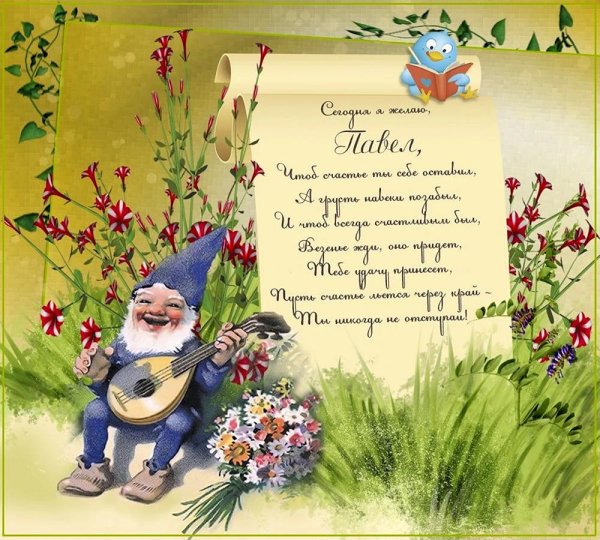 Сегодня я желаю,
Павел,
Чтоб счастье ты себе оставил,
А грусть навеки позабыл,
И чтоб всегда счастливым был,
Везенье жди, оно придет,
Тебе удачу принесет,
Пусть счастье льется через край –
Ты никогда не отступай!